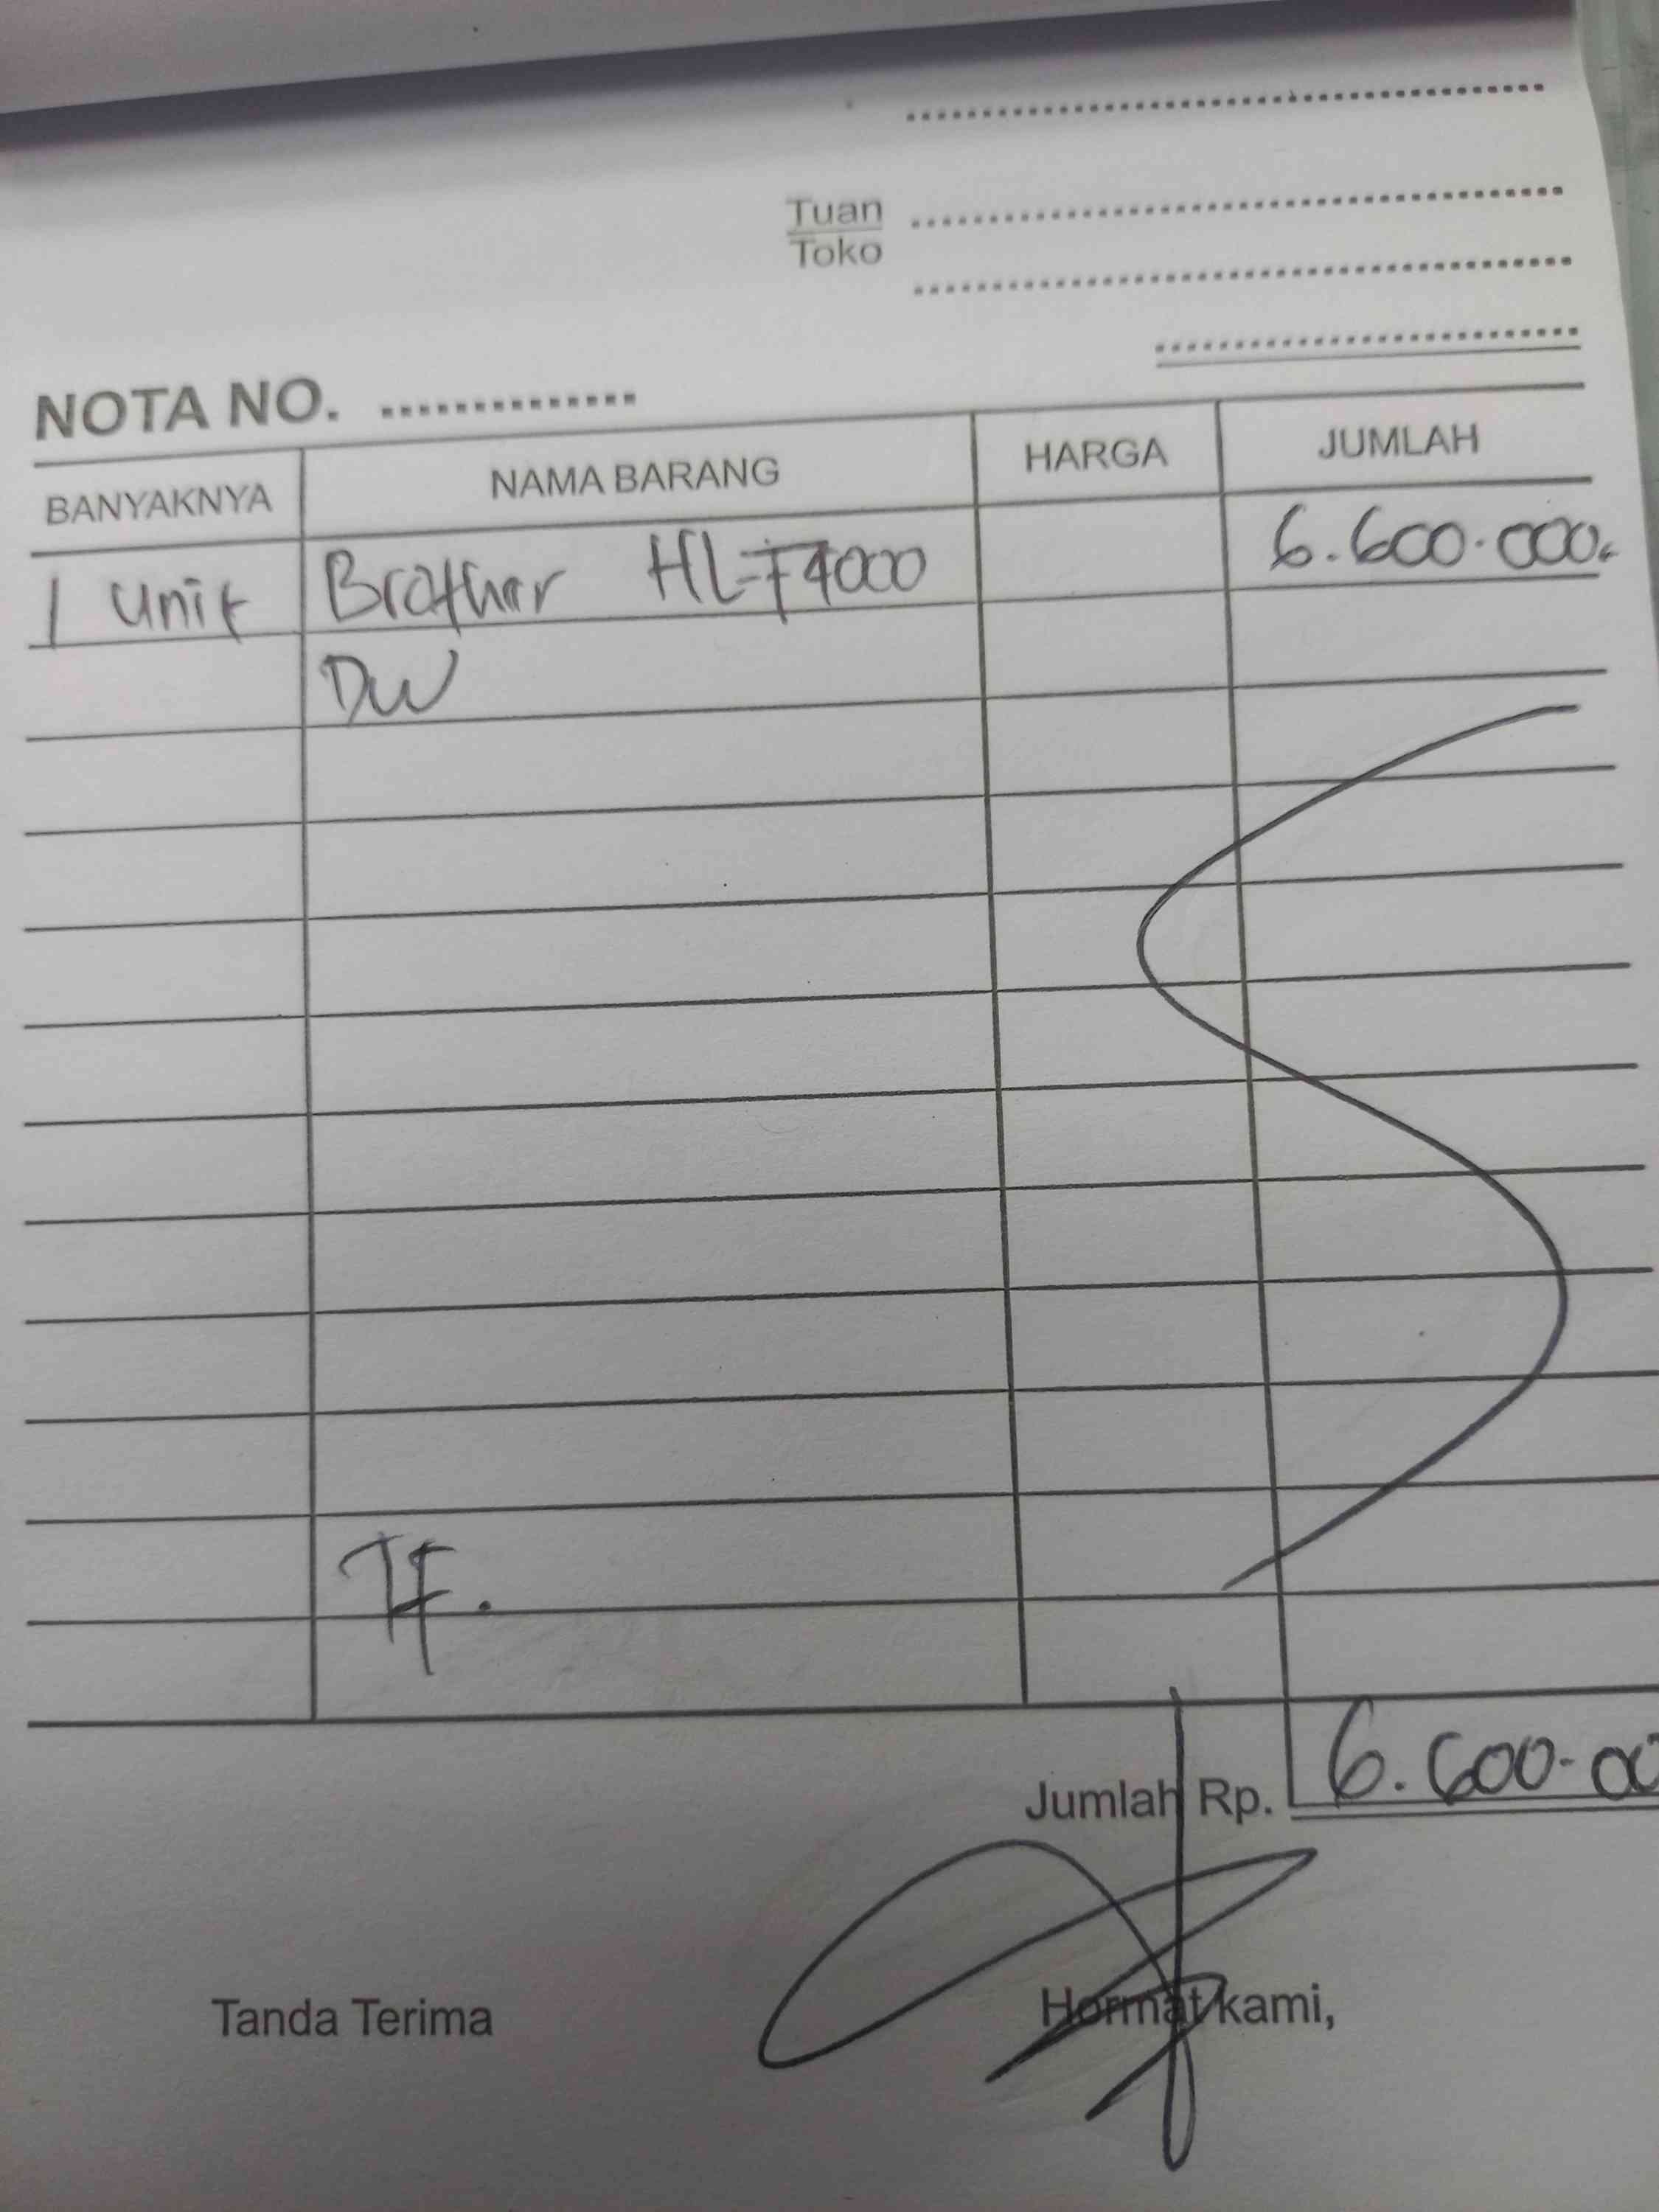 Tuan
Toko
NOTA NO. ..............
BANYAKNYA NAMA BARANG HARGA JUMLAH
1 Unit Brother HL-T4000 6.600.000.
DW
TF.
Jumlah Rp. 6.600.00
Tanda Terima Hormat kami,